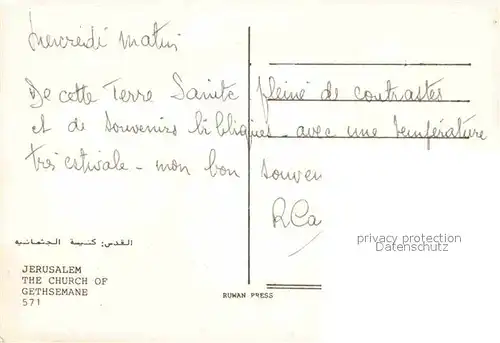 Mercredi matin
De cette Terre Sainte pleine de contrastes
et de souvenirs bibliques - avec une température
très estivale - mon bon souven
RCa
privacy protection
Datenschutz
القدس: كنيسة الجثمانيه
JERUSALEM
THE CHURCH OF
GETHSEMANE
571
RUWAN PRESS